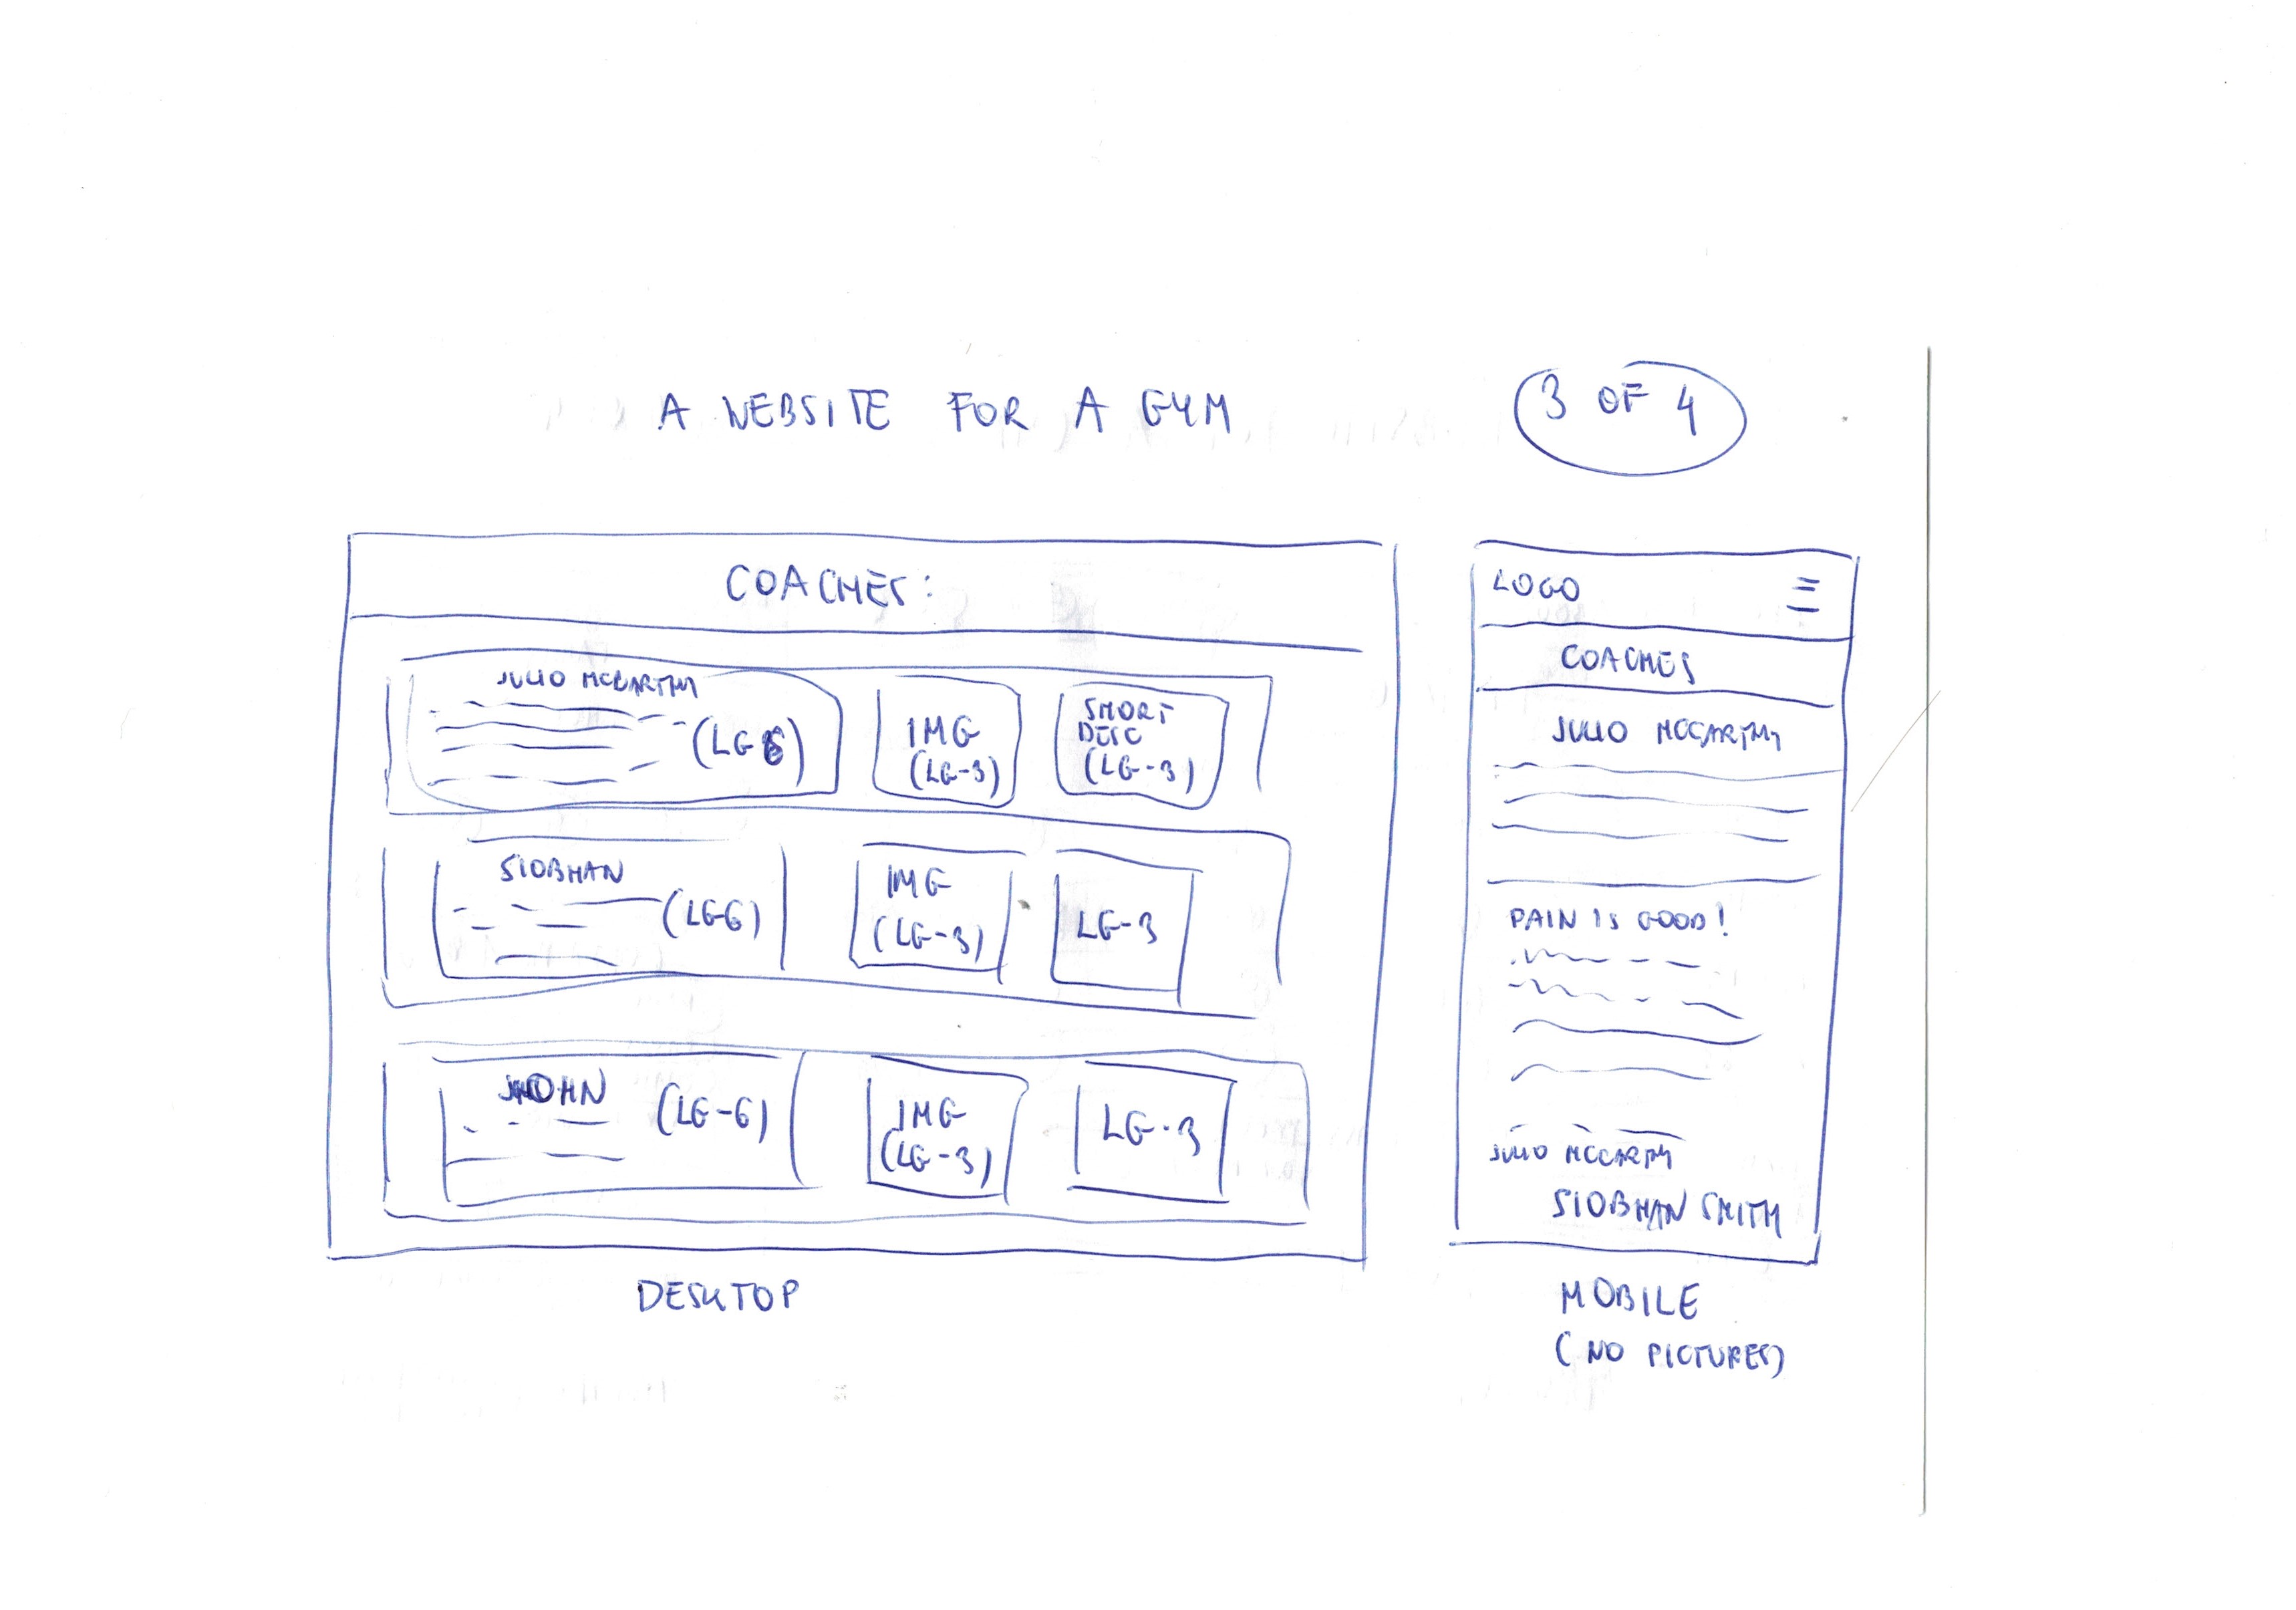 A WEBSITE FOR A GYM
3 OF 4
COACHES:
JULIO MCCARTHY
(LG 6)
IMG
(LG-3)
SHORT
DESC
(LG-3)
SIOBHAN
(LG-6)
IMG
(LG-3)
LG-3
JHOHN
(LG-6)
IMG
(LG-3)
LG-3
DESKTOP
LOGO
COACHES
JULIO MCCARTHY
PAIN IS GOOD!
JULIO MCCARTHY
SIOBHAN SMITH
MOBILE
(NO PICTURES)